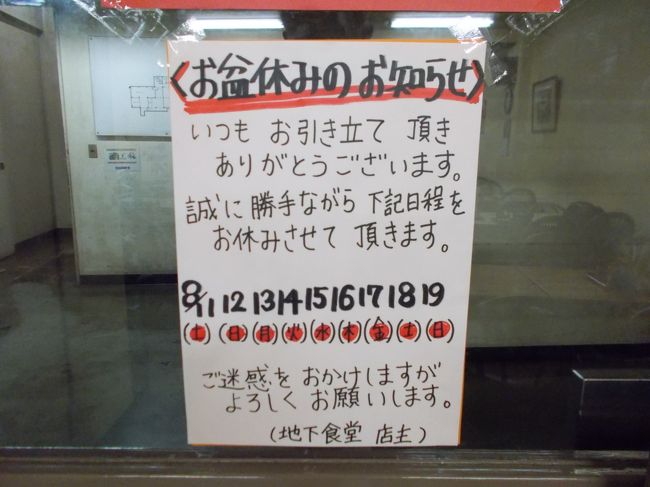 〈お盆休みのお知らせ〉
いつも お引き立て 頂き
ありがとうございます。
誠に 勝手ながら 下記日程を
お休みさせて 頂きます。
8/11 12 13 14 15 16 17 18 19
(土) (日) (月) (火) (水) (木) (金) (土) (日)
ご迷惑を おかけしますが
よろしく お願いします。
(地下食堂 店主)